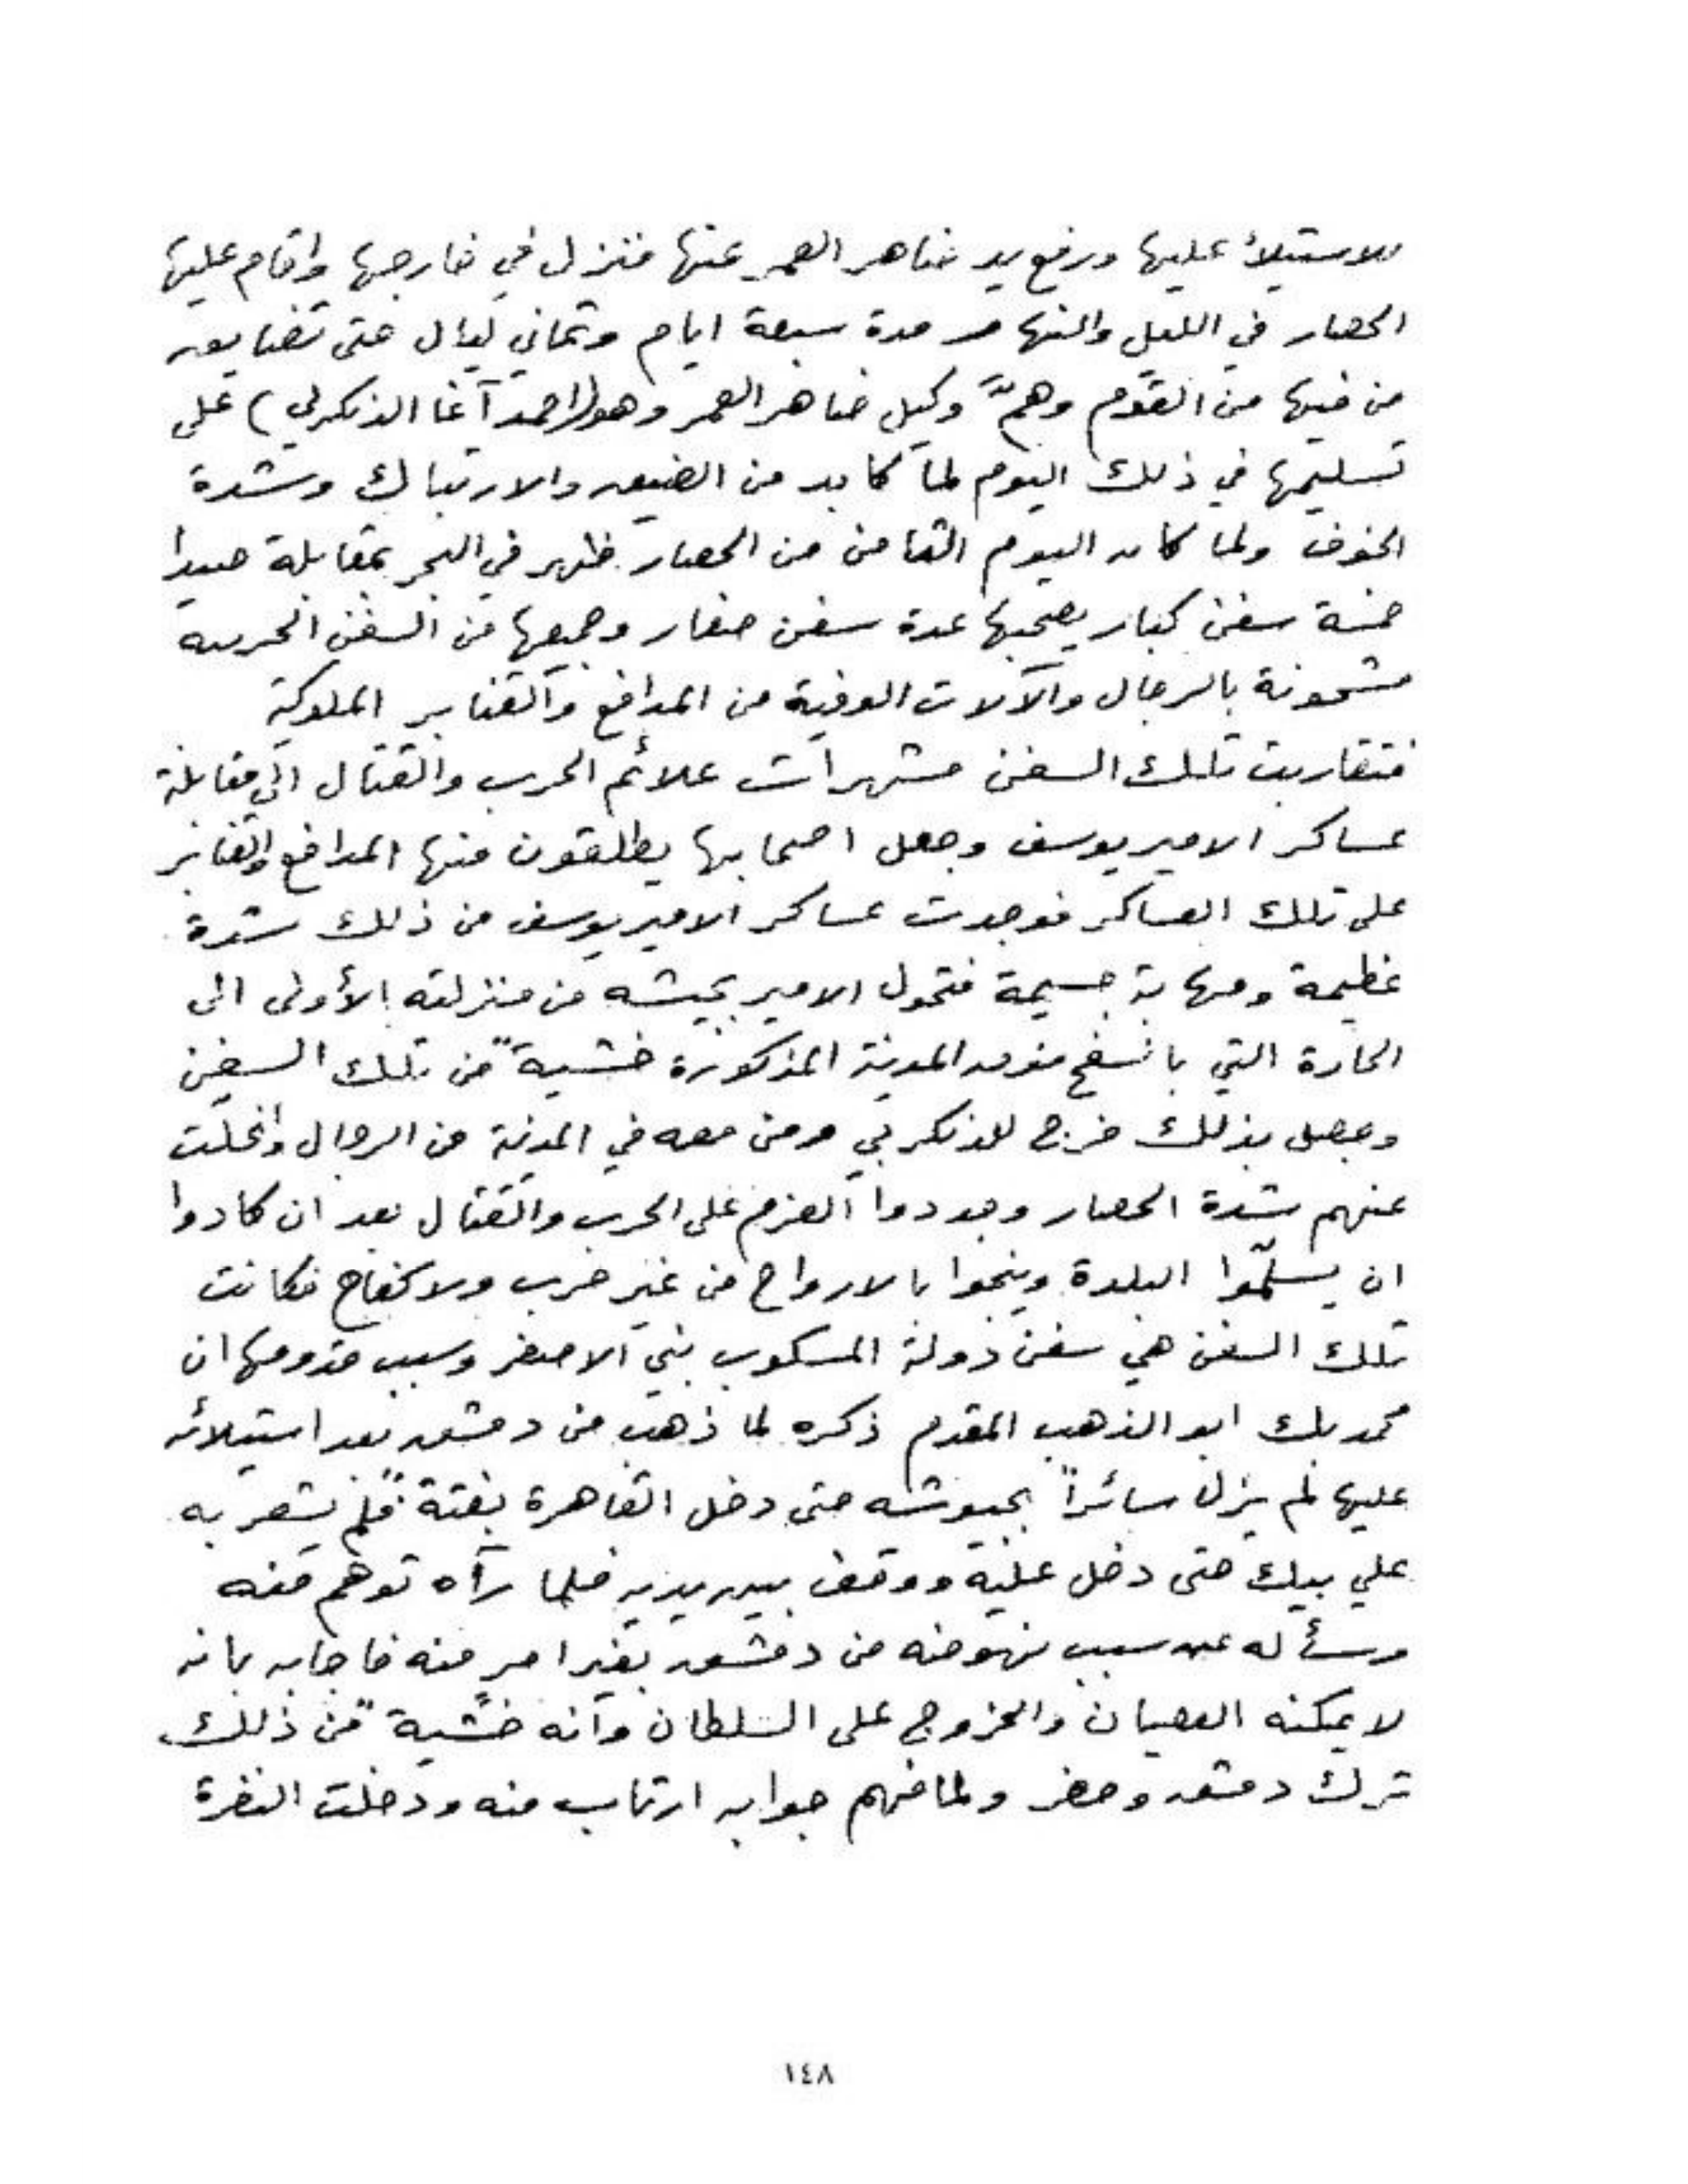 للاستيلاء عليها ورفع يد ضاهر العمر عنها فنزل في خارجها واقام عليها
الحصار في الليل والنهار مدة سبعة ايام وثماني ليال حتى تضايق
من فيها من القوم وهمّ وكيل ضاهر العمر وهو (احمد آغا الدنكزلي) على
تسليمها في ذلك اليوم لما كابد من الضيق والارتباك وشدة
الخوف ولما كان اليوم الثامن من الحصار ظهر في البحر بمقابلة صيدا
خمسة سفن كبار يصحبها عدة سفن صغار وجميعها من السفن الحربيه
مشحونة بالرجال والآلات الوفية من المدافع والقنابر الملوكية
فتقاربت تلك السفن مشهرات علائم الحرب والقتال الى مقابلة
عساكر الامير يوسف وجعل اصحابها يطلقون منها المدافع والقنابر
على تلك العساكر فوجدت عساكر الامير يوسف من ذلك شدة
عظيمة ومهابة جسيمة فتحول الامير بجيشه من منزلته الأولى الى
الحارة التي بالسفح فوق المدينة المذكورة خشيةً من تلك السفن
وحصل بذلك فرج للدنكزلي ومن معه في المدينة من الرجال وانحلت
عنهم شدة الحصار وجددوا العزم على الحرب والقتال بعد ان كادوا
ان يسلّموا البلدة وينجوا بالارواح من غير حرب ولا كفاح فكانت
تلك السفن هي سفن دولة المسكوب بني الاصفر وسبب قدومها ان
محمد بك ابو الذهب المقدم ذكره لما ذهب من دمشق بعد استيلائه
عليها لم يزل سائراً بجيوشه حتى دخل القاهرة بغتةً فلم يشعر به
علي بيك حتى دخل عليه ووقف بين يديه فلما رآه توهم منه
وسأله عن سبب نهوضه من دمشق بغير امر منه فاجابه بانه
لا يمكنه العصيان والخروج على السلطان وانه خشيةً من ذلك
ترك دمشق وحضر ولما فهم جوابه ارتاب منه ودخلت النفرة
١٤٨